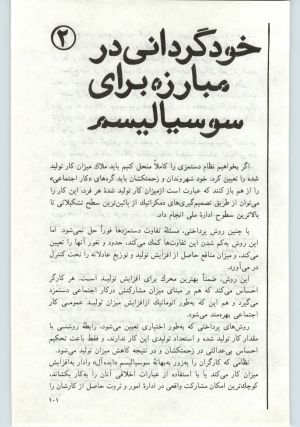 ۲
خودگردانی در
مبارزه برای
سوسیالیسم
اگر بخواهیم نظام دستمزدی را کاملاً منحل کنیم باید ملاک میزان کار تولید
شده را تعیین کرد. خود شهروندان و زحمتکشان باید گره‌های «کار اجتماعی»
را از هم باز کنند که عبارت است از میزان کار تولید شدهٔ هر فرد، این کار را
می‌توان از طریق تصمیم‌گیری‌های دمکراتیک از پائین‌ترین سطح تشکیلاتی تا
بالاترین سطوح ادارهٔ ملی انجام داد.
با چنین روش پرداختی، مسئلهٔ تفاوت دستمزدها فوراً حل نمی‌شود. اما
این روش به‌کم شدن این تفاوت‌ها کمک می‌کند، حدود و ثغور آنها را تعیین
می‌کند، و میزان منافع حاصل از افزایش تولید و توزیع عادلانه را تحت کنترل
در می‌آورد.
این روش، ضمناً بهترین محرک برای افزایش تولید است. هر کارگر
احساس می‌کند که هم بر مبنای میزان مشارکتش در کار اجتماعی دستمزد
می‌گیرد و هم این که به‌طور اتوماتیک از افزایش میزان تولید عمومی کار
اجتماعی بهره‌مند می‌شود.
روش‌های پرداختی که به‌طور اختیاری تعیین می‌شود، رابطهٔ روشنی با
مقدار کار تولید شده و استعداد تولیدی این کار ندارند، و فقط باعث تحکیم
احساس بی‌عدالتی در زحمتکشان و در نتیجه کاهش میزان تولید می‌شود.
نظامی که کارگران را به‌زور به‌بهانهٔ سوسیالیسم «ایده‌آل» وادار به‌افزایش
میزان کار می‌کند یا با استفاده از عبارات اخلاقی آنان را به‌کار بکشاند،
کوچک‌ترین امکان مشارکت واقعی در ادارهٔ امور و ثروت حاصل از کارشان را
۱۰۱